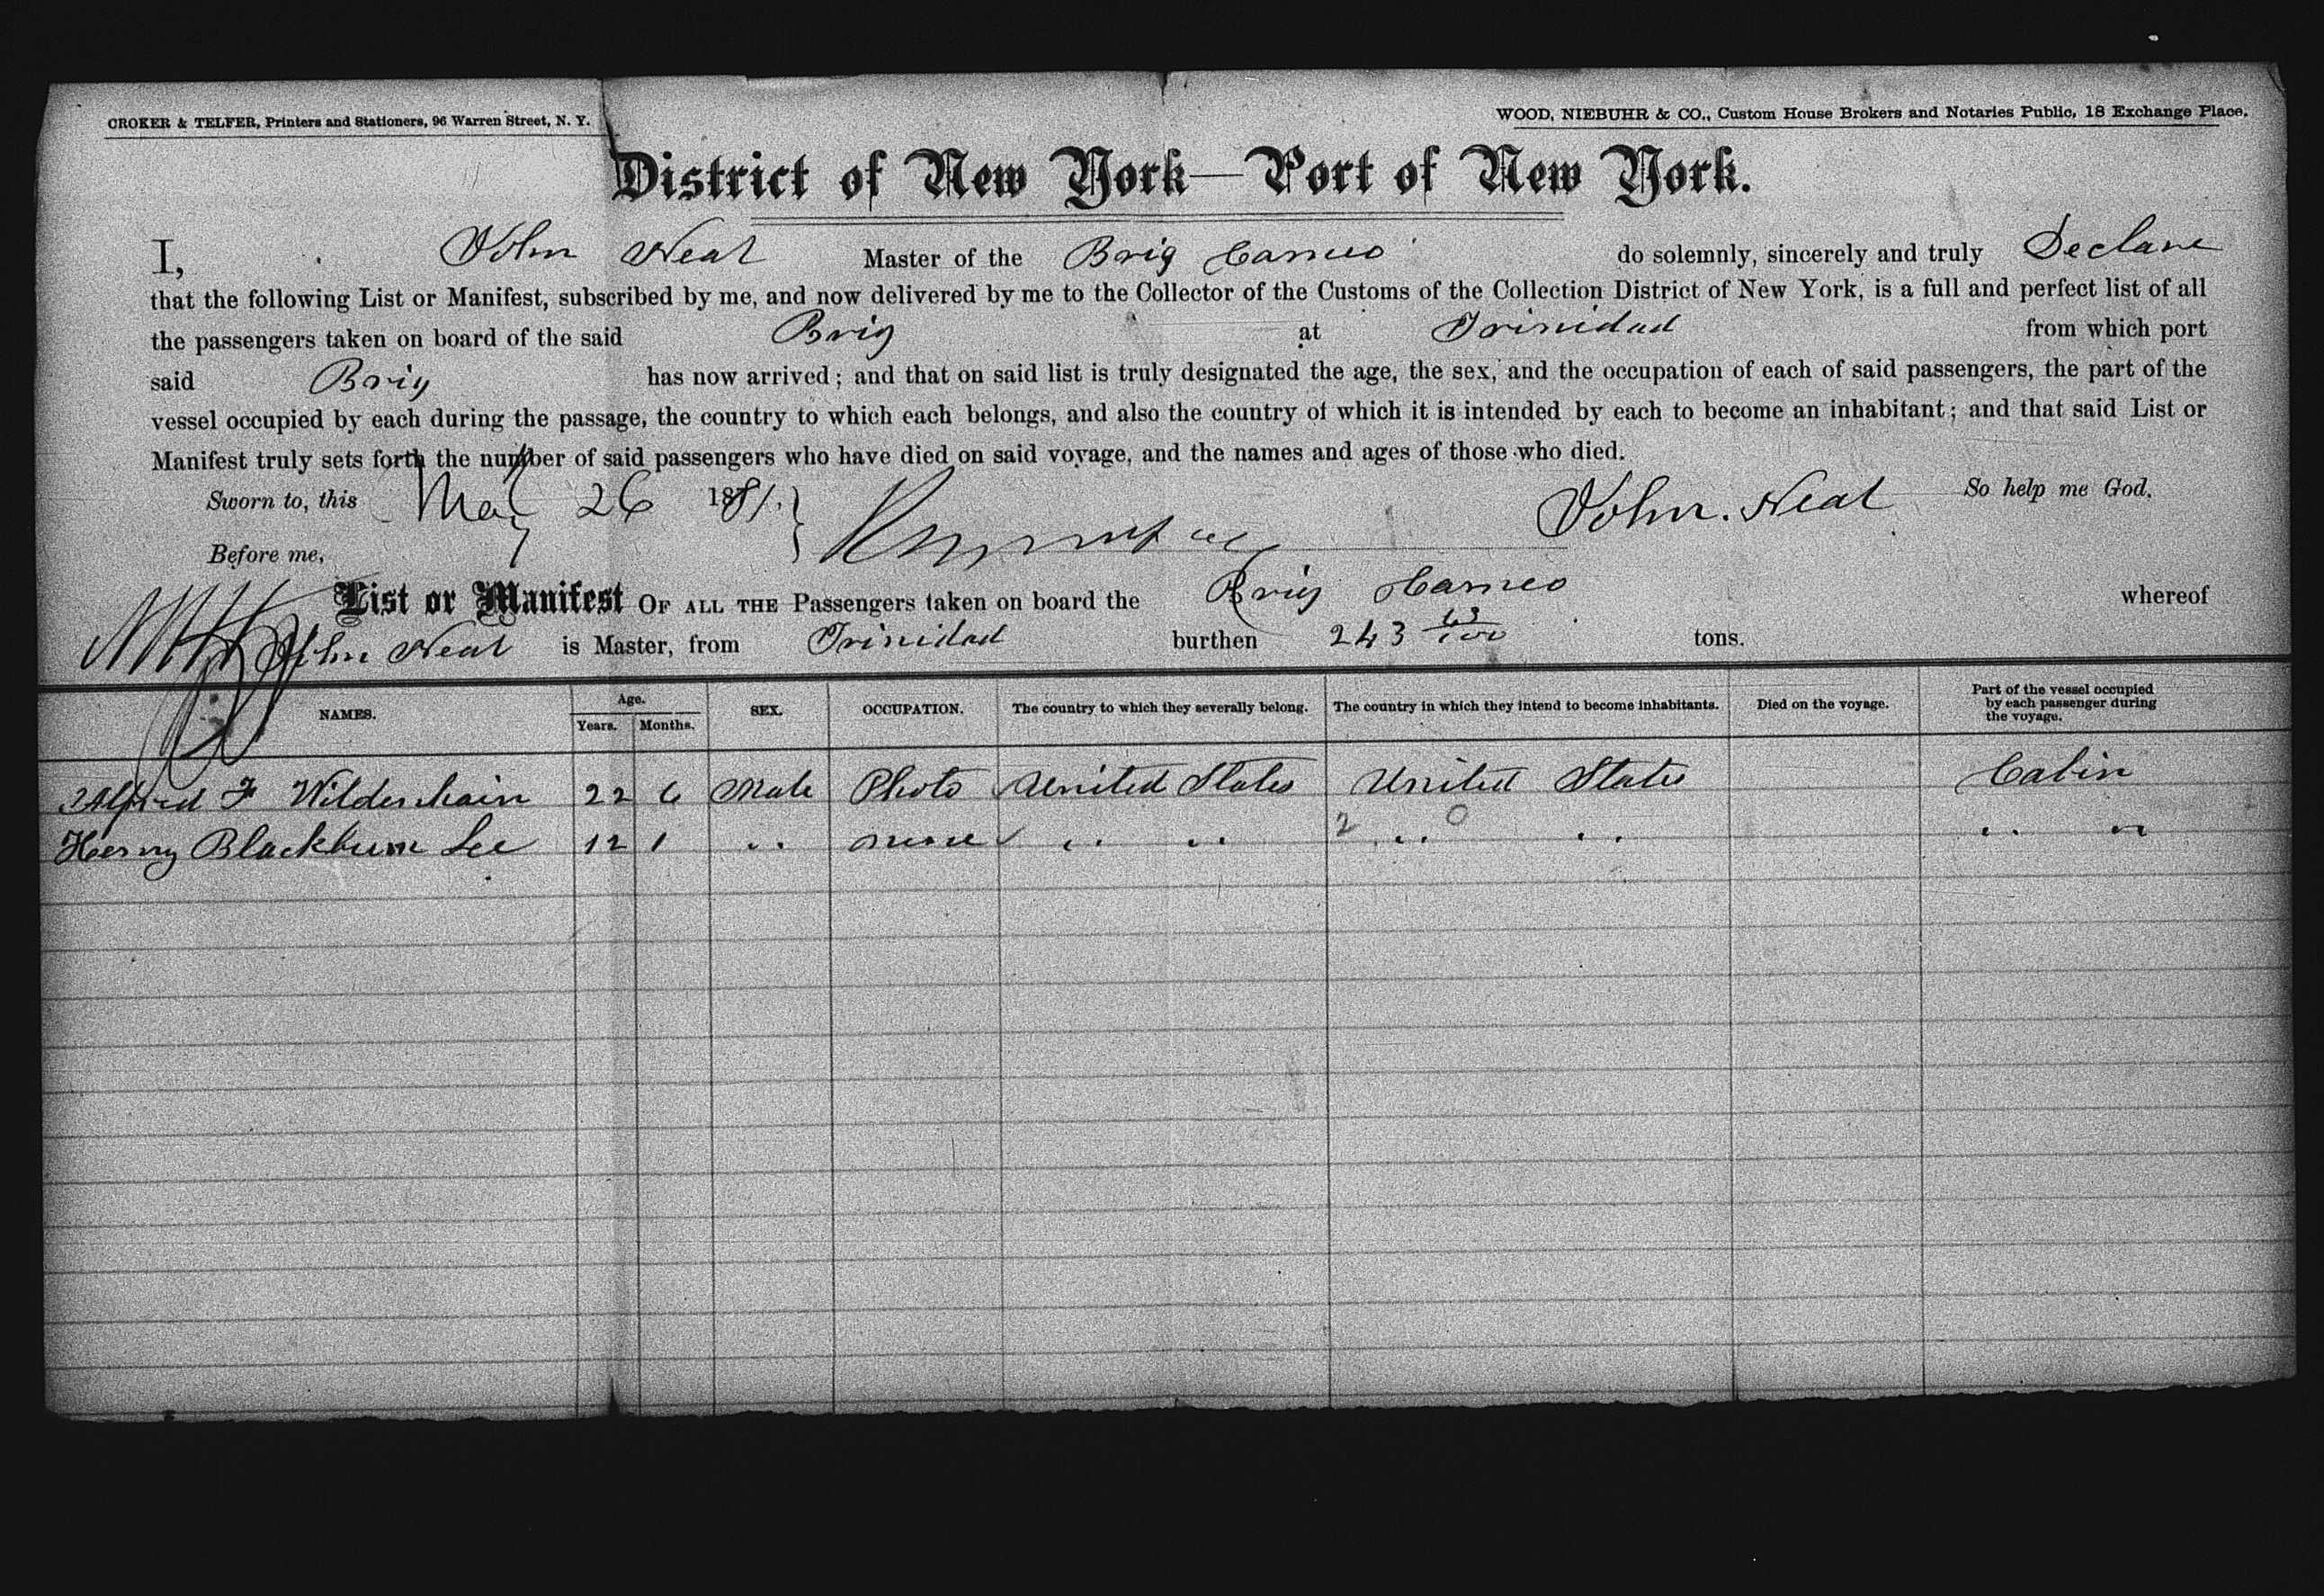 CROKER & TELFER, Printers and Stationers, 96 Warren Street, N. Y.
WOOD, NIEBUHR & CO., Custom House Brokers and Notaries Public, 18 Exchange Place.
District of New York—Port of New York.
I, John Neal Master of the Brig Cameo do solemnly, sincerely and truly Declare
that the following List or Manifest, subscribed by me, and now delivered by me to the Collector of the Customs of the Collection District of New York, is a full and perfect list of all
the passengers taken on board of the said Brig at Trinidad from which port
said Brig has now arrived; and that on said list is truly designated the age, the sex, and the occupation of each of said passengers, the part of the
vessel occupied by each during the passage, the country to which each belongs, and also the country of which it is intended by each to become an inhabitant; and that said List or
Manifest truly sets forth the number of said passengers who have died on said voyage, and the names and ages of those who died.
Sworn to, this May 26 1881. John. Neal So help me God.
Before me,
List or Manifest OF ALL THE Passengers taken on board the Brig Cameo whereof
John Neal is Master, from Trinidad burthen 243 63/100 tons.
NAMES. Age. Years. Months. SEX. OCCUPATION. The country to which they severally belong. The country in which they intend to become inhabitants. Died on the voyage. Part of the vessel occupied by each passenger during the voyage.
Alfred F Wildenhain 22 6 Male Photo United States United States Cabin
Henry Blackburn Lee 12 1 " none " " 2 " 0 " " "